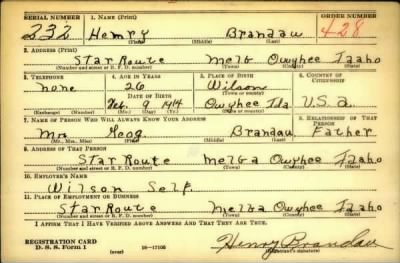 SERIAL NUMBER 1. NAME (Print) ORDER NUMBER
232 Henry Brandau 428
(First) (Middle) (Last)
2. ADDRESS (Print)
Star Route Melba Owyhee Idaho
(Number and street or R. F. D. number) (Town) (County) (State)
3. TELEPHONE 4. AGE IN YEARS 5. PLACE OF BIRTH 6. COUNTRY OF CITIZENSHIP
none 26 Wilson
DATE OF BIRTH
Feb. 9 1914 Owyhee Ida U.S.a.
(Exchange) (Number) (Mo.) (Day) (Yr.) (State or country)
7. NAME OF PERSON WHO WILL ALWAYS KNOW YOUR ADDRESS 8. RELATIONSHIP OF THAT PERSON
Mr. Geog. Brandau Father
(Mr., Mrs., Miss) (First) (Middle) (Last)
9. ADDRESS OF THAT PERSON
Star Route Melba Owyhee Idaho
(Number and street or R. F. D. number) (Town) (County) (State)
10. EMPLOYER'S NAME
Wilson Self
11. PLACE OF EMPLOYMENT OR BUSINESS
Star Route Melba Owyhee Idaho
(Number and street or R. F. D. number) (Town) (County) (State)
I AFFIRM THAT I HAVE VERIFIED ABOVE ANSWERS AND THAT THEY ARE TRUE.
REGISTRATION CARD
D. S. S. Form 1 (over) 16—17105 Henry Brandau
(Registrant's signature)